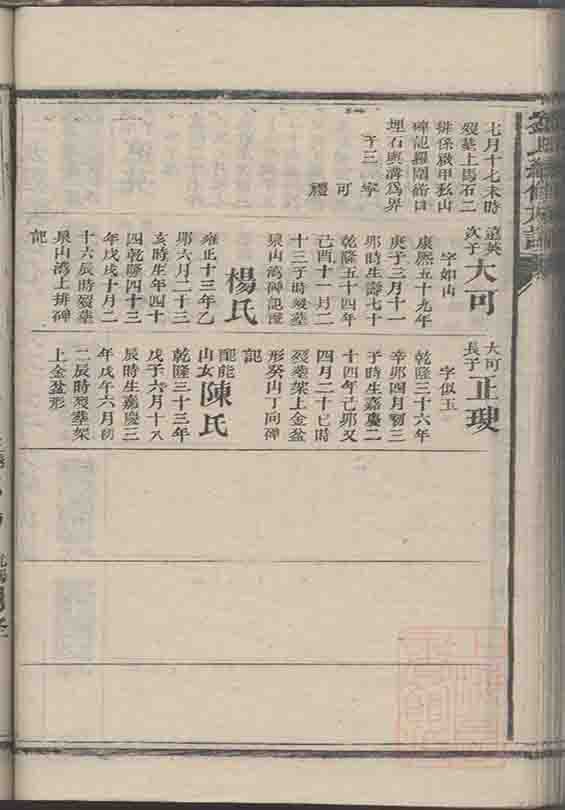 七月十七未時
歿葬上馬石二
排係癸甲茲山
碑記羅圍嵛口
埋石輿溝為界
子三
寧
可
禮
遠英
次子
大可
字如山
康熙五十九年
庚子三月十一
卯時生壽七十
乾隆五十四年
己酉十一月二
十三子時歿葬
泉山灣碑記
楊氏
雍正十三年乙
卯六月二十三
亥時生年四十
四乾隆四十三
年戊戌十月二
十六辰時歿葬
泉山灣上排碑
記
大可
長子
正璁
字似玉
乾隆三十六年
辛卯四月初三
子時生嘉慶二
十四年己卯又
四月二十七巳時
歿葬架上金盆
形癸山丁向碑
記
配能
山女
陳氏
乾隆三十三年
戊子六月十八
辰時生嘉慶三
年戊午六月初
二辰時歿葬架
上金盆形